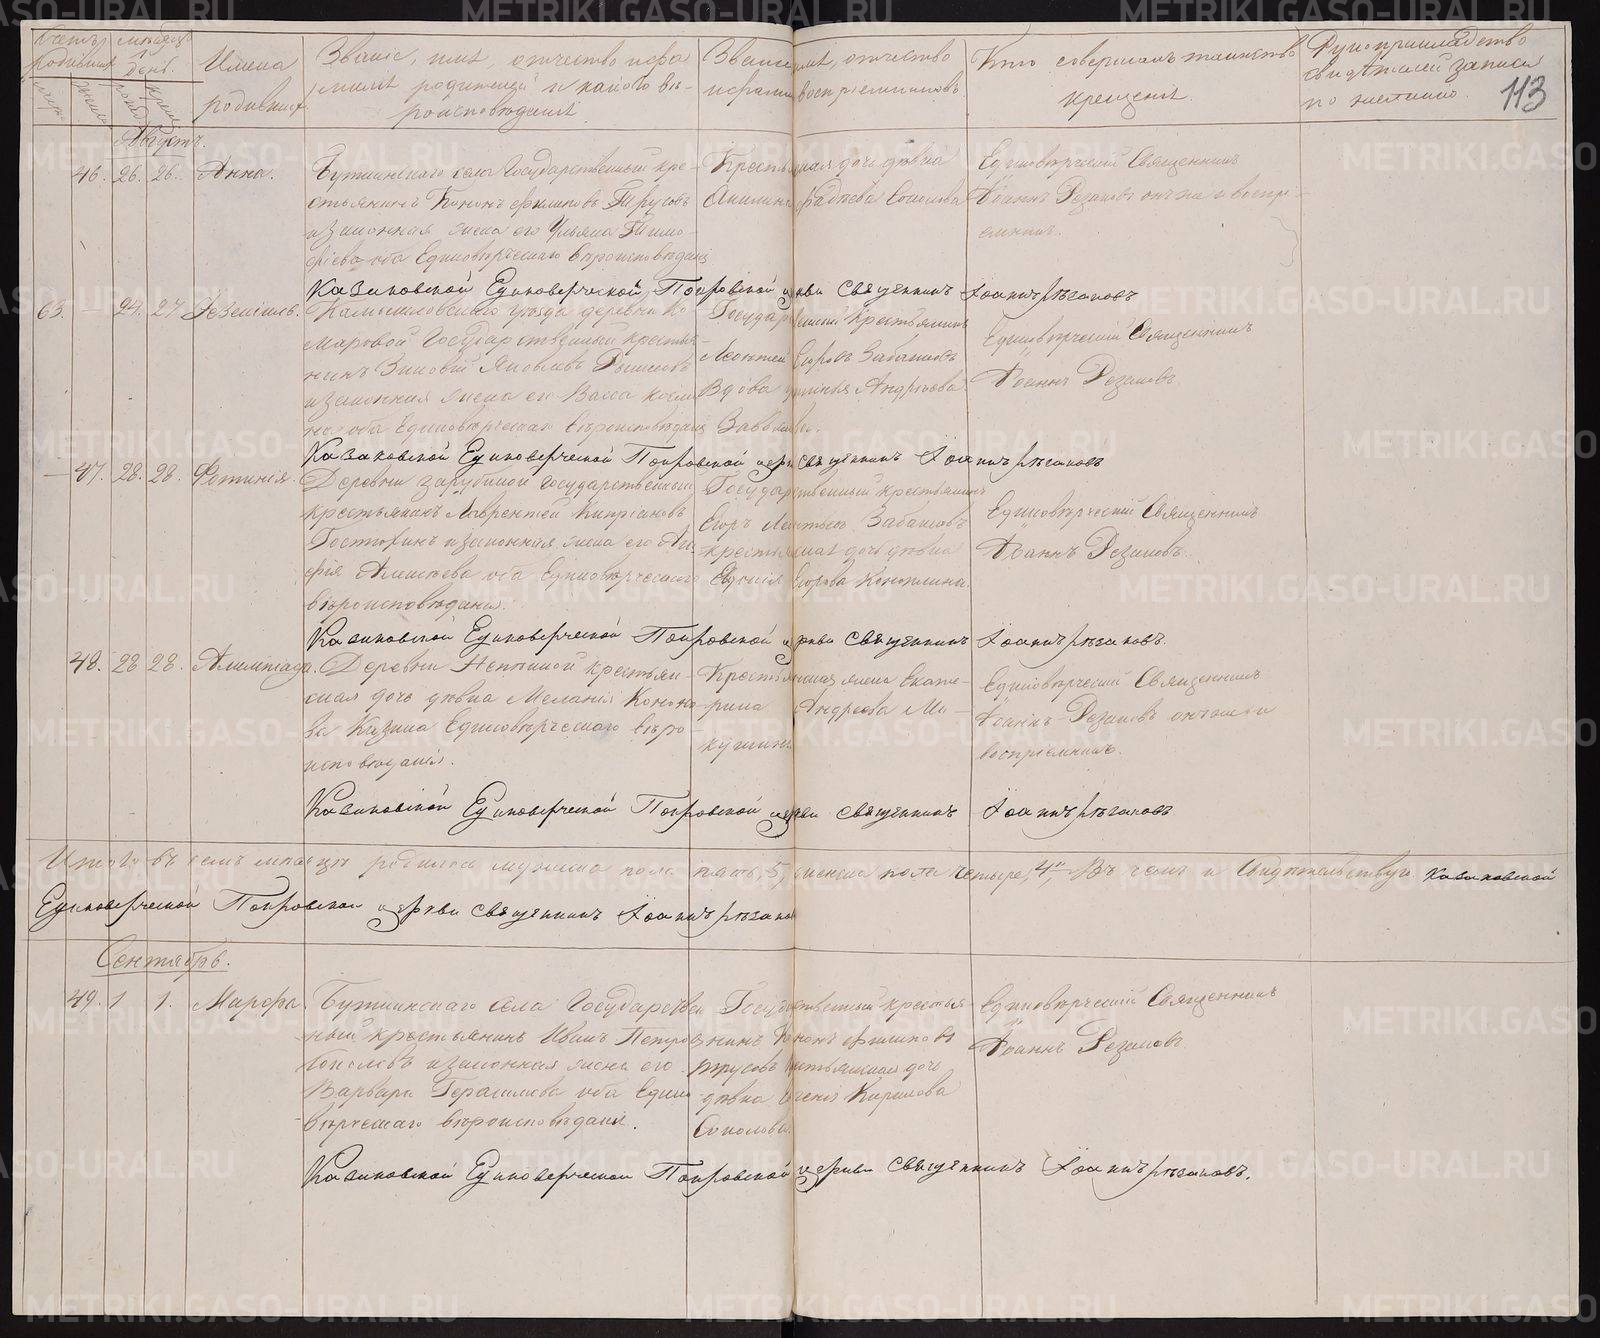 Счетъ родившихся
Мѣсяцъ и день.
Имена родившихся
Званіе, имя, отчество и фа-
милія родителей и какого вѣ-
роисповѣданія.
Званіе, имя, отчество
и фамилія воспріемниковъ
Кто совершалъ таинство
крещенія.
Рукоприкладство
свидѣтелей записи
по желанію.
113
Августъ.
46. 26. 26. Анна.
государственный кре-
стьянинъ Кононъ Филиповъ Трусовъ
и законная жена его Ульяна Тимо-
фѣева оба Единовѣрческаго вѣроисповѣданія
Крестьянская дочь дѣвка
Соколова
Единовѣрческій Священникъ
Іоаннъ Рѣзановъ онъ же и воспрі-
емникъ.
Казаковской Единоверческой Покровской церкви священникъ Іоаннъ Рѣзановъ
63. — 24. 27
Камышловскаго уѣзда деревни Ко-
маровой Государственный крестья-
нинъ Зиновій Яковлевъ
и законная жена его Васса
оба Единовѣрческаго вѣроисповѣданія
Государственный крестьянинъ
Леонтій Егоровъ Забалуевъ
Вдова Андрѣева
Единовѣрческій Священникъ
Іоаннъ Рѣзановъ.
Казаковской Единоверческой Покровской церкви священникъ Іоаннъ Рѣзановъ
— 47. 28. 28. Фотинія.
Деревни Зарубиной Государственный
крестьянинъ Лаврентій Кипріановъ
и законная жена его
Алексѣева оба Единовѣрческаго
вѣроисповѣданія.
Государственный крестьянинъ
Егоръ Леонтьевъ Забалуевъ
крестьянская дочь дѣвка
Евдокія Егорова Коноплина.
Единовѣрческій Священникъ
Іоаннъ Рѣзановъ.
Казаковской Единоверческой Покровской церкви священникъ Іоаннъ Рѣзановъ.
48. 28 28. Алимпіада.
Деревни крестьян-
ская дочь дѣвка Меланія Кононо-
ва Казина Единовѣрческаго вѣро-
исповѣданія.
Крестьянская жена Екате-
рина Андреева
Единовѣрческій Священникъ
Іоаннъ Рѣзановъ онъ же и
воспріемникъ.
Казаковской Единоверческой Покровской церкви священникъ Іоаннъ Рѣзановъ
Итого въ семъ мѣсяцѣ родилось мужеска пола пять, 5, женска пола четыре, 4, Въ чемъ и свидѣтельствую Казаковской
Единоверческой Покровской церкви священникъ Іоаннъ Рѣзановъ
Сентябрь.
49. 1 1. Марфа.
села Государствен-
ный крестьянинъ Иванъ Петровъ
Соколовъ и законная жена его
Варвара Герасимова оба Едино-
вѣрческаго вѣроисповѣданія.
Государственный крестья-
нинъ Кононъ Филиповъ
Трусовъ крестьянская дочь
дѣвка Кирилова
Соколова.
Единовѣрческій Священникъ
Іоаннъ Рѣзановъ
Казаковской Единоверческой Покровской церкви священникъ Іоаннъ Рѣзановъ.
METRIKI.GASO-URAL.RU